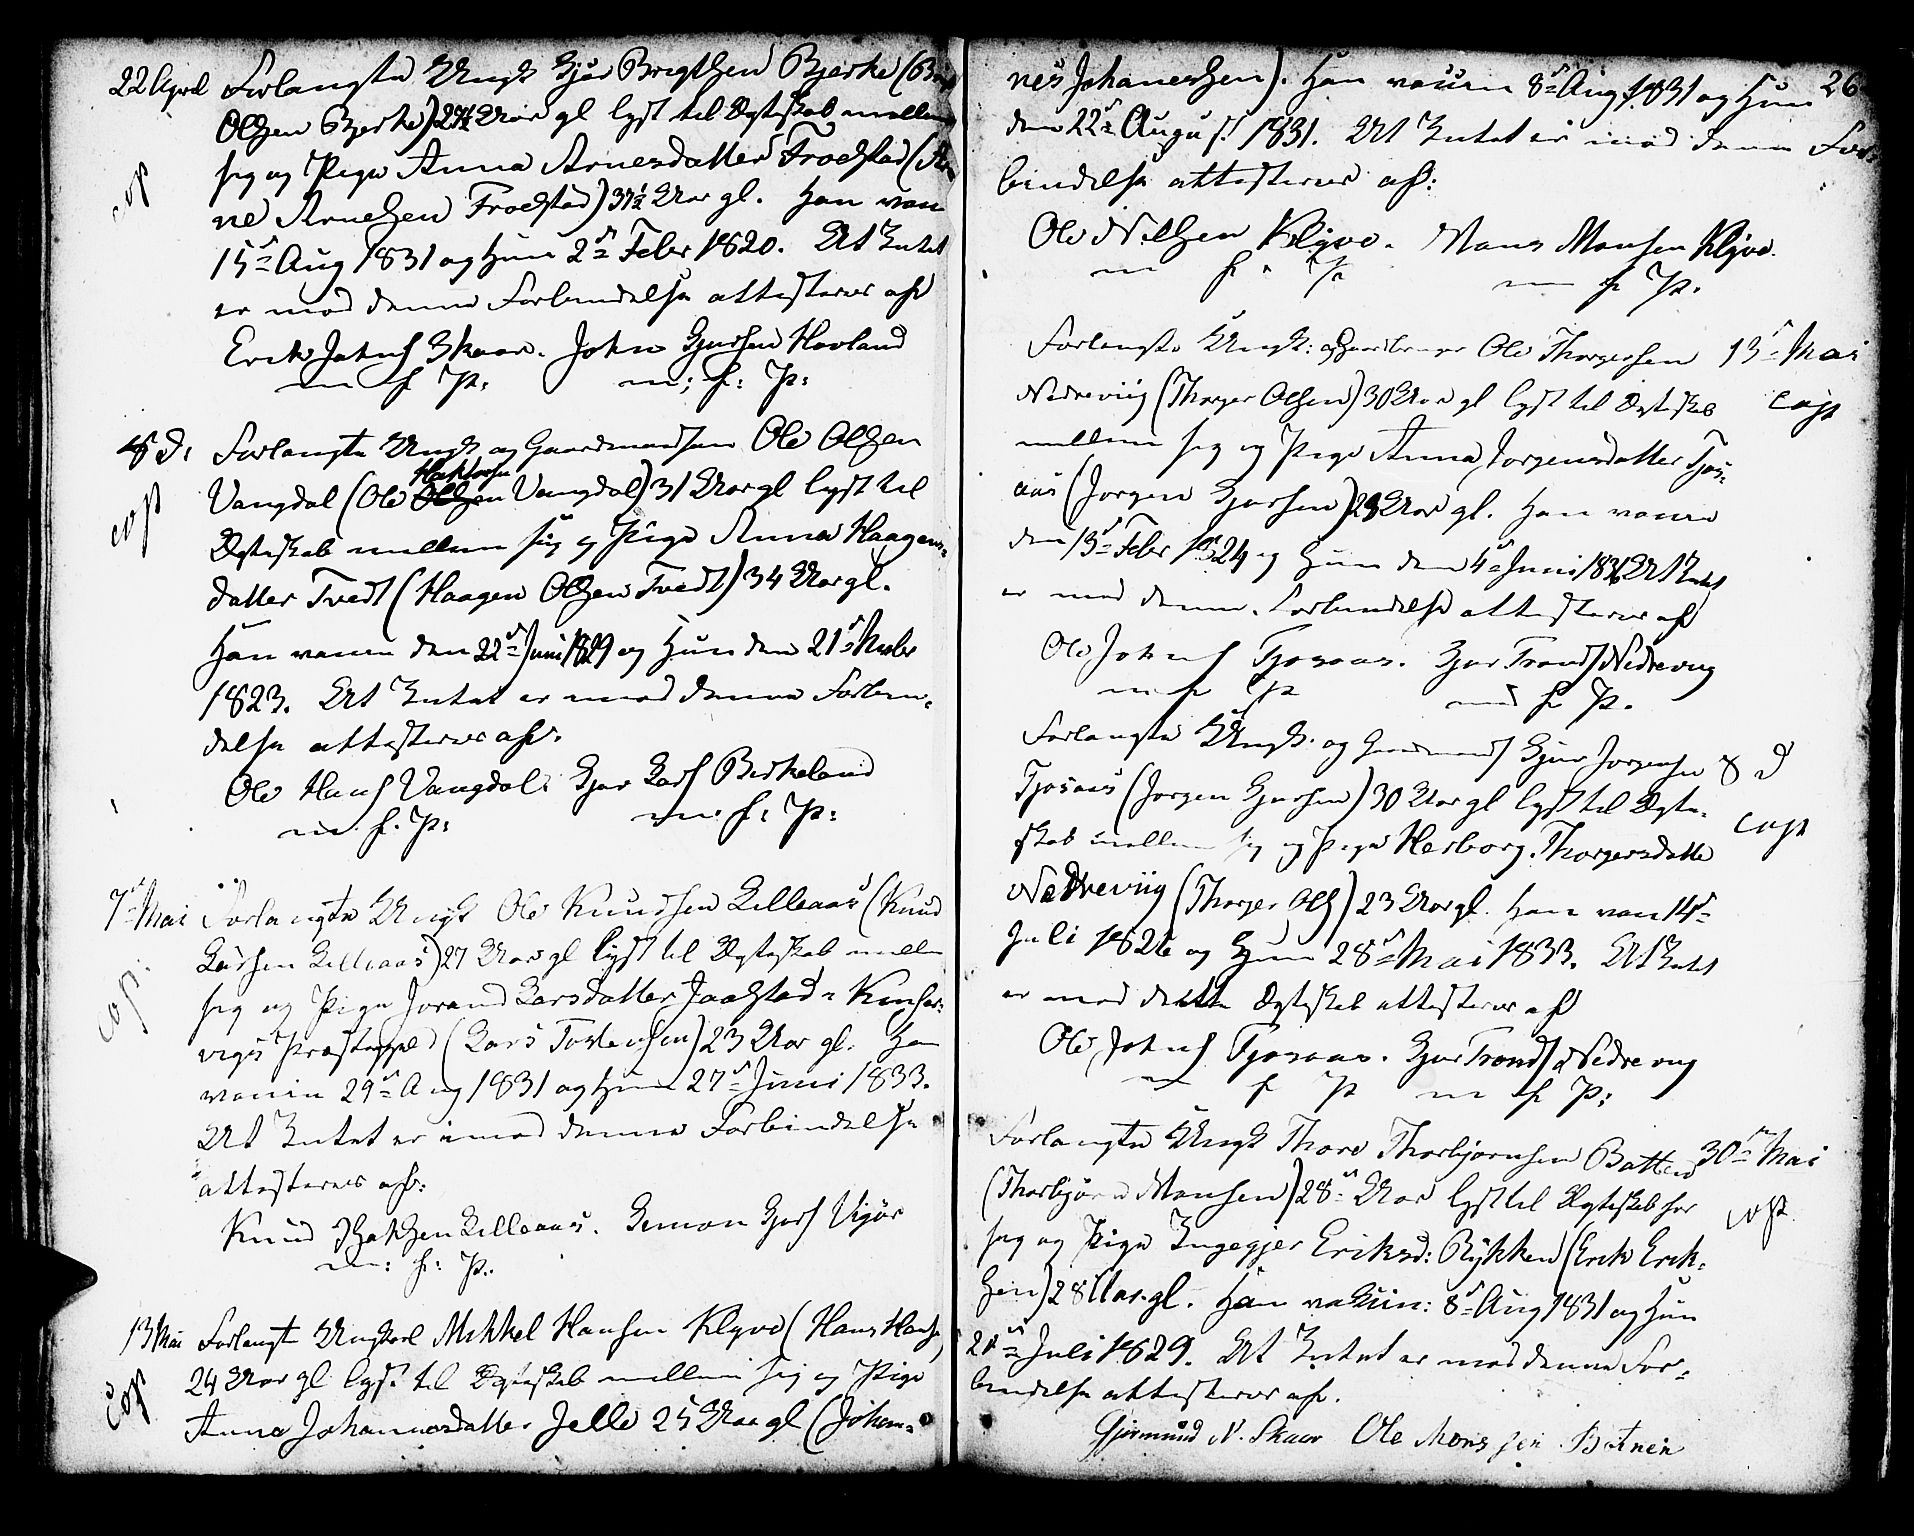 22 April Forlangte Ungk Gjør Brigtsen Bjerke (
Olsen Bjerke) Aar gl lyst til Ægteskab mellem
sig og Pige Anna Arnesdatter Froestad (Ar
ne Arnesen Froestad) 37½ Aar gl. Han vacc
cop
15de Aug 1831 og Hun 2den Febr 1820. At Intet
er mod denne Forbindelse attesteres af
Erik Johns Skaar. John Gjørsen Havland
m f P: m: f: P:
s D: Forlangte Ungk og Gaardmandsøn Ole Olsen
Haktorsen
Vangdal (Ole Olsen Vangdal) 31 Aar gl lyst til
cop
Ægteskab mellem sig og Pige Anna Haagens-
datter Tvedt (Haagen Olsen Tvedt) 34 Aar gl.
Han vaccin den 22de Juni 1829 og Hun den 21de
1823. At Intet er mod denne Forbin-
delse attesteres af.
Ole Hans Vangdal. Gjør Lars Birkeland
m. f. P: m. f: P:
7de Mai Forlangte Ungk Ole Knudsen Lilleaas (Knud
Larsen Lilleaas) 27 Aar gl lyst til Ægteskab mellem
sig og Pige Jorand Larsdatter Jaastad i Kinser-
cop.
vigs Præstegjeld (Lars Torstensen) 23 Aar gl. Han
vaccin 29de Aug 1831 og Hun 27de Juni 1833.
At Intet er imod denne Forbindelse
attesteres af:
Knud Lilleaas. Simon Gjørs Vigør
m: f: P:
13 Mai Forlangt Ungkarl Mikkel Hansen Klyve (Hans Hanse
24 Aar gl lyst til Ægteskab mellem sig og Pige
cop
Anna Johannesdatter Jelle 25 Aar gl (Johan-
nes Johanessen). Han vaccin 8de Aug 1831 og Hun 26
den 22de August 1831. At Intet er imod denne For-
bindelse attesteres af:
Ole Nilsen Klyve. Mons Monsen Klyve.
m f P m f P.
Forlangte Ungk: og Ole Thorgersen 13de Mai
Nedreviig (Thorger Olsen) 30 Aar gl lyst til Ægteskab copt
mellem sig og Pige Anna Jorgensdatter Tjos-
aas (Jorgen Gjørsen) Aar gl. Han vaccin
den 13de Febr 1824 og Hun den 4de Juni At Intet
er mod denne Forbindelse attesteres af
Ole Johns Tjosaas. Gjør Tronds Nedrevig
m f P med f P.
Forlangte Ungk: og Gaardmands Gjør Jorgensen s D
Tjosaas (Jorgen Gjørsen) 30 Aar gl lyst til Ægte-
skab mellem sig og Pige Herborg Thorgersdatter copt
Nedreviig (Thorger Ols) 23 Aar gl. Han vacc 14de
Juli 1826 og Hun 28de Mai 1833. At Intet
er mod dette Ægteskab attesteres af
Ole Johns Tjosaas. Gjør Tronds Nedrevig
m f P m f P:
Forlangte Ungk Thore Thorbjørnsen Botten 30te Mai
(Thorbjørn Monsen) 28de Aar lyst til Ægteskab for
sig og Pige Ingegjer Eriksd: Rykken (Erik Erik- copt.
sen) 28 Aar gl. Han vaccin: 8de Aug 1831 og Hun
Juli 1829. At Intet er mod denne For-
bindelse attesteres af.
Gjermund N. Skaar Ole Monssen Botnen